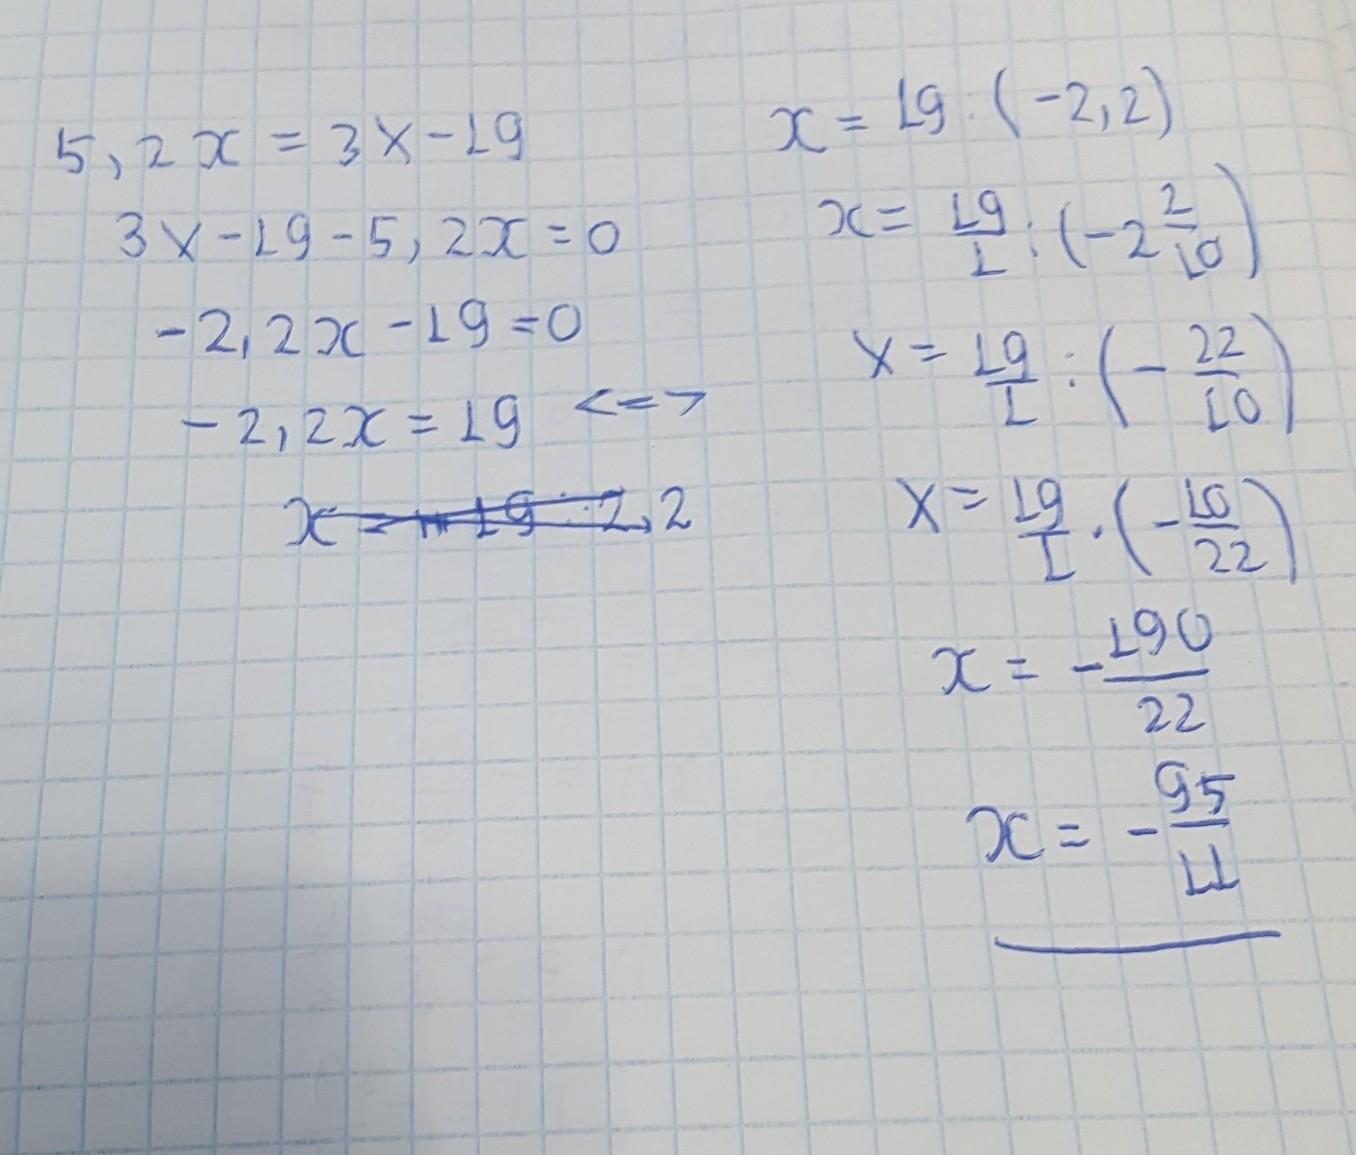 5,2x = 3x-19
3x-19-5,2x=0
-2,2x-19=0
-2,2x=19 <=>
x = 19:2,2
x = 19:(-2,2)
x = 19/1 : (-2 2/10)
x = 19/1 : (-22/10)
x = 19/1 · (-10/22)
x = -190/22
x = -95/11